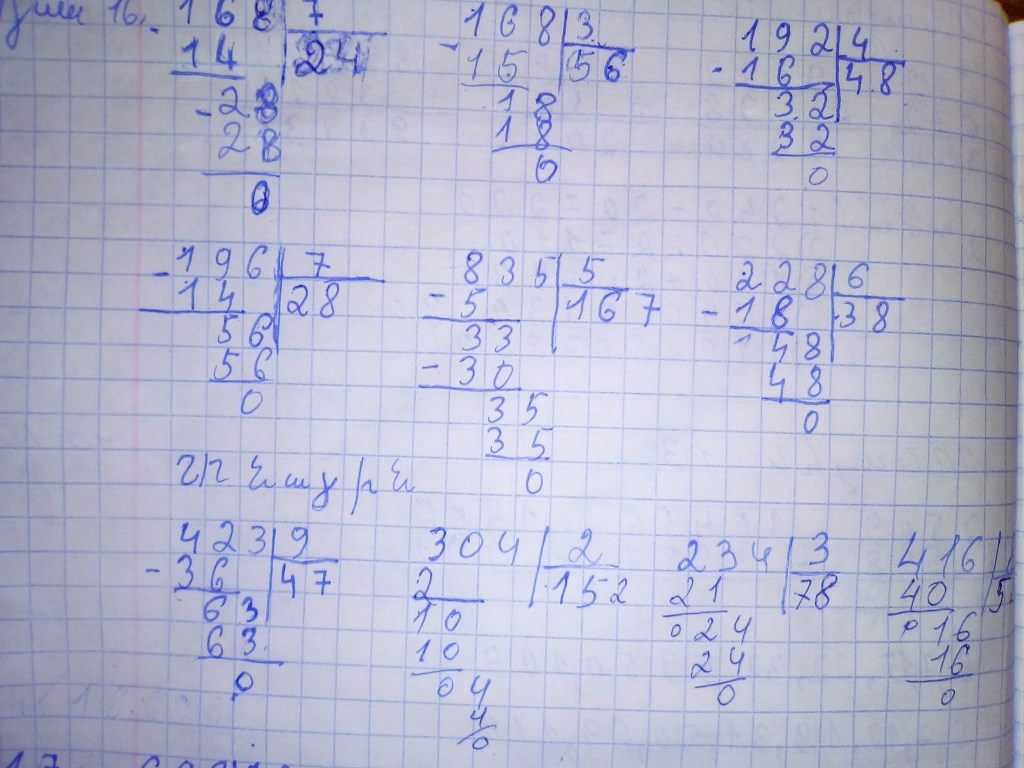 16.
168 7
14 24
- 28
28
0
- 168 3
15 56
18
18
0
192 4
- 16 48
32
32
0
- 196 7
14 28
56
56
0
835 5
- 5 167
33
- 30
35
35
0
228 6
- 18 38
48
48
0
423 9
- 36 47
63
63
0
304 2
2 152
10
10
04
4
0
234 3
21 78
024
24
0
416
40 5
016
16
0